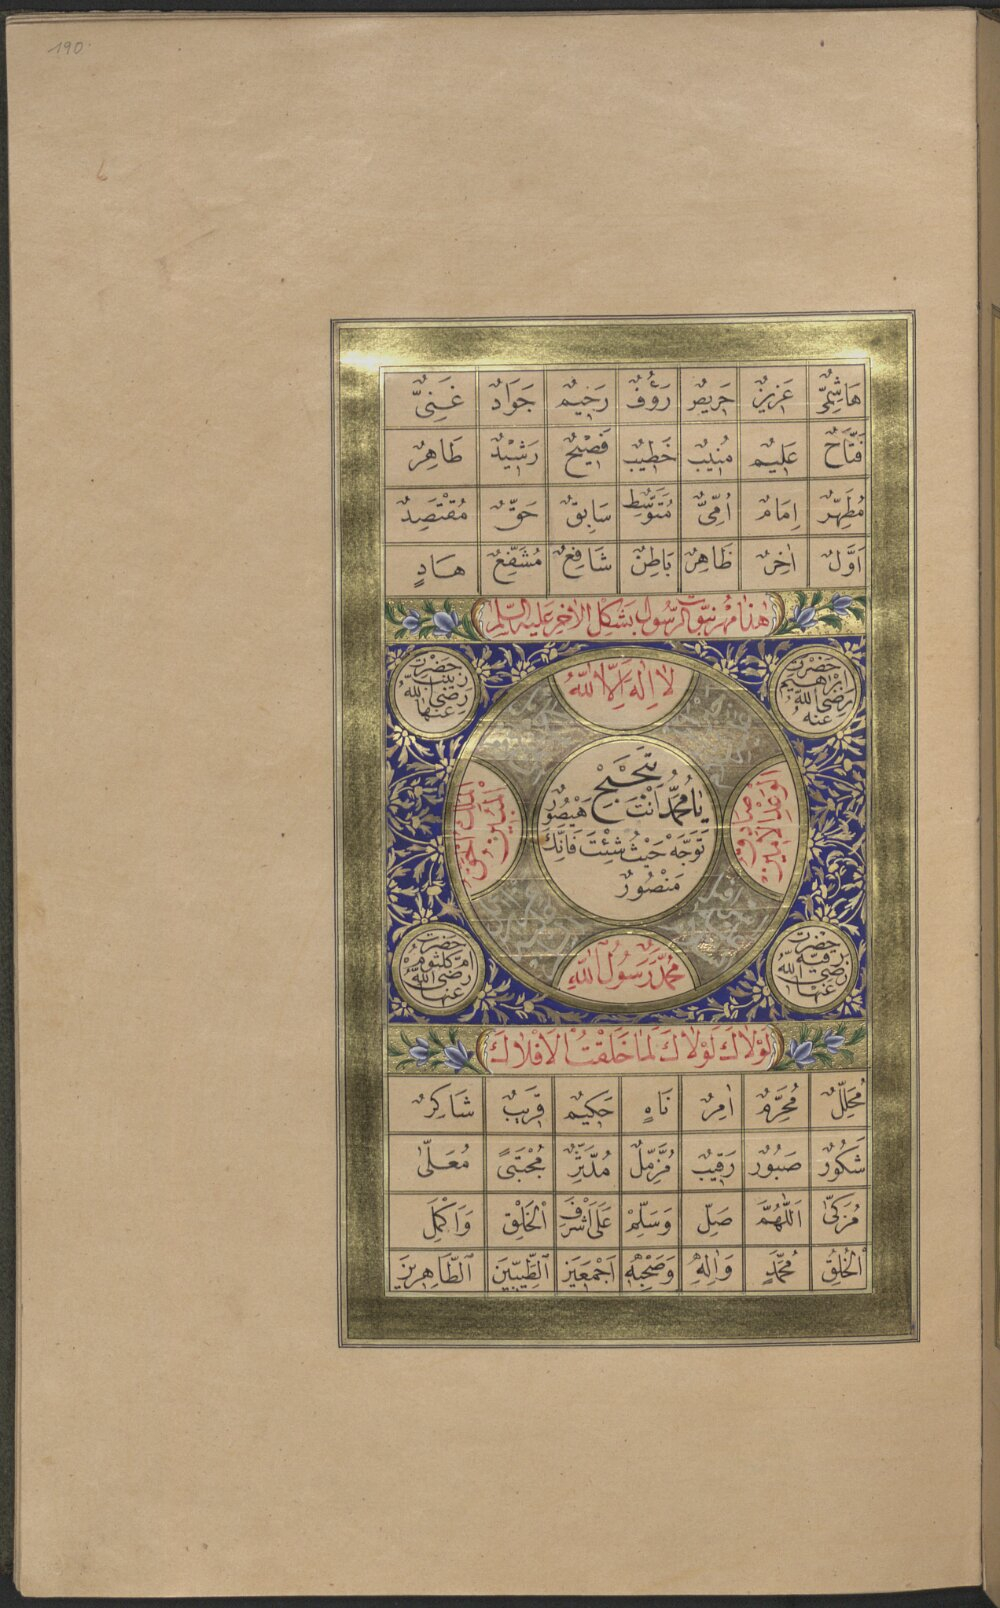 190
هَاشِمِىٌّ عَزِيزٌ حَرِيصٌ رَؤُفٌ رَحِيمٌ جَوَادٌ غَنِىٌّ
فَتَّاحٌ عَلِيمٌ مُنِيبٌ خَطِيبٌ فَصِيْحٌ رَشِيْدٌ طَاهِرٌ
مُطَهِّرٌ اِمَامٌ اُمِّىٌّ مُتَوَسِّطٌ سَابِقٌ حَقٌّ مُقْتَصِدٌ
اَوَّلٌ اٰخِرٌ ظَاهِرٌ بَاطِنٌ شَافِعٌ مُشَفِّعٌ هَادٍ
هٰذَا مُهْرِ نُبُوَّتِ الرَّسُولِ بِشَكْلِ الْاٰخِرِ عَلَيْهِ السَّلَام
حَضْرَتِ اِبْرَاهِيمَ رَضِىَ اللّٰهُ عَنْهُ
حَضْرَتِ زَيْنَبْ رَضِىَ اللّٰهُ عَنْهَا
لَا اِلٰهَ اِلَّا اللّٰهُ
اَلْمَلِكُ الْحَقُّ الْمُبِينُ
يَا مُحَمَّدُ اَنْتَ
هَيْصُورٌ
تَوَجَّهْ حَيْثُ شِئْتَ فَاِنَّكَ
مَنْصُورٌ
صَادِقُ الْوَعْدِ الْاَمِينْ
مُحَمَّدٌ رَسُولُ اللّٰهِ
حَضْرَتِ رُقَيَّه رَضِىَ اللّٰهُ عَنْهَا
حَضْرَتِ اُمِّ كُلْثُومْ رَضِىَ اللّٰهُ عَنْهَا
لَوْلَاكَ لَوْلَاكَ لَمَا خَلَقْتُ الْاَفْلَاكَ
مُحَلِّلٌ مُحَرِّمٌ اٰمِرٌ نَاهٍ حَكِيمٌ قَرِيبٌ شَاكِرٌ
شَكُورٌ صَبُورٌ رَقِيبٌ مُزَّمِّلٌ مُدَّثِّرٌ مُجْتَبًى مُعَلّٰى
مُزَكّٰى اَللّٰهُمَّ صَلِّ وَسَلِّمْ عَلٰى اَشْرَفِ الْخَلْقِ وَاَكْمَلِ
الْخُلُقِ مُحَمَّدٍ وَاٰلِهِ وَصَحْبِهِ اَجْمَعِينَ الطَّيِّبِينَ الطَّاهِرِينَ